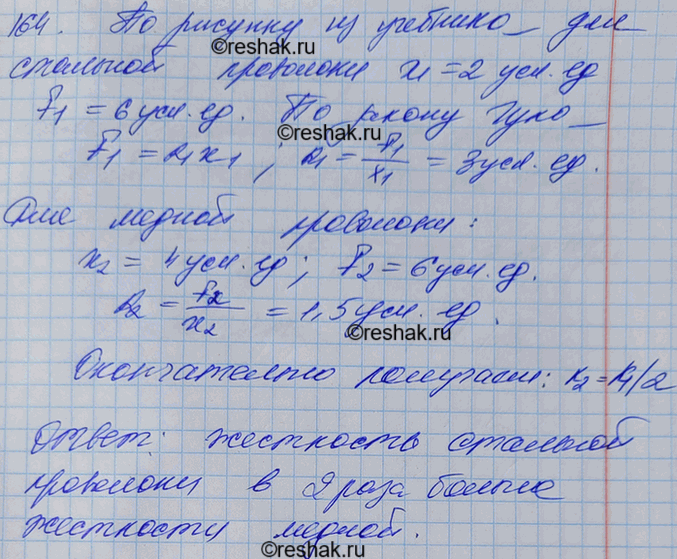 164. По рисунку из учебника для
©reshak.ru
стальной проволоки x1 = 2 усл. ед
F1 = 6 усл. ед. По закону Гука
©reshak.ru
F1 = k1x1 ; k1 = F1/x1 = 3 усл. ед.
Для медной проволоки:
x2 = 4 усл. ед; F2 = 6 усл. ед.
k2 = F2/x2 = 1,5 усл. ед.
©reshak.ru
Окончательно получаем: k2 = k1/2
Ответ: жесткость стальной
проволоки в 2 раза больше
жесткости медной.
©reshak.ru